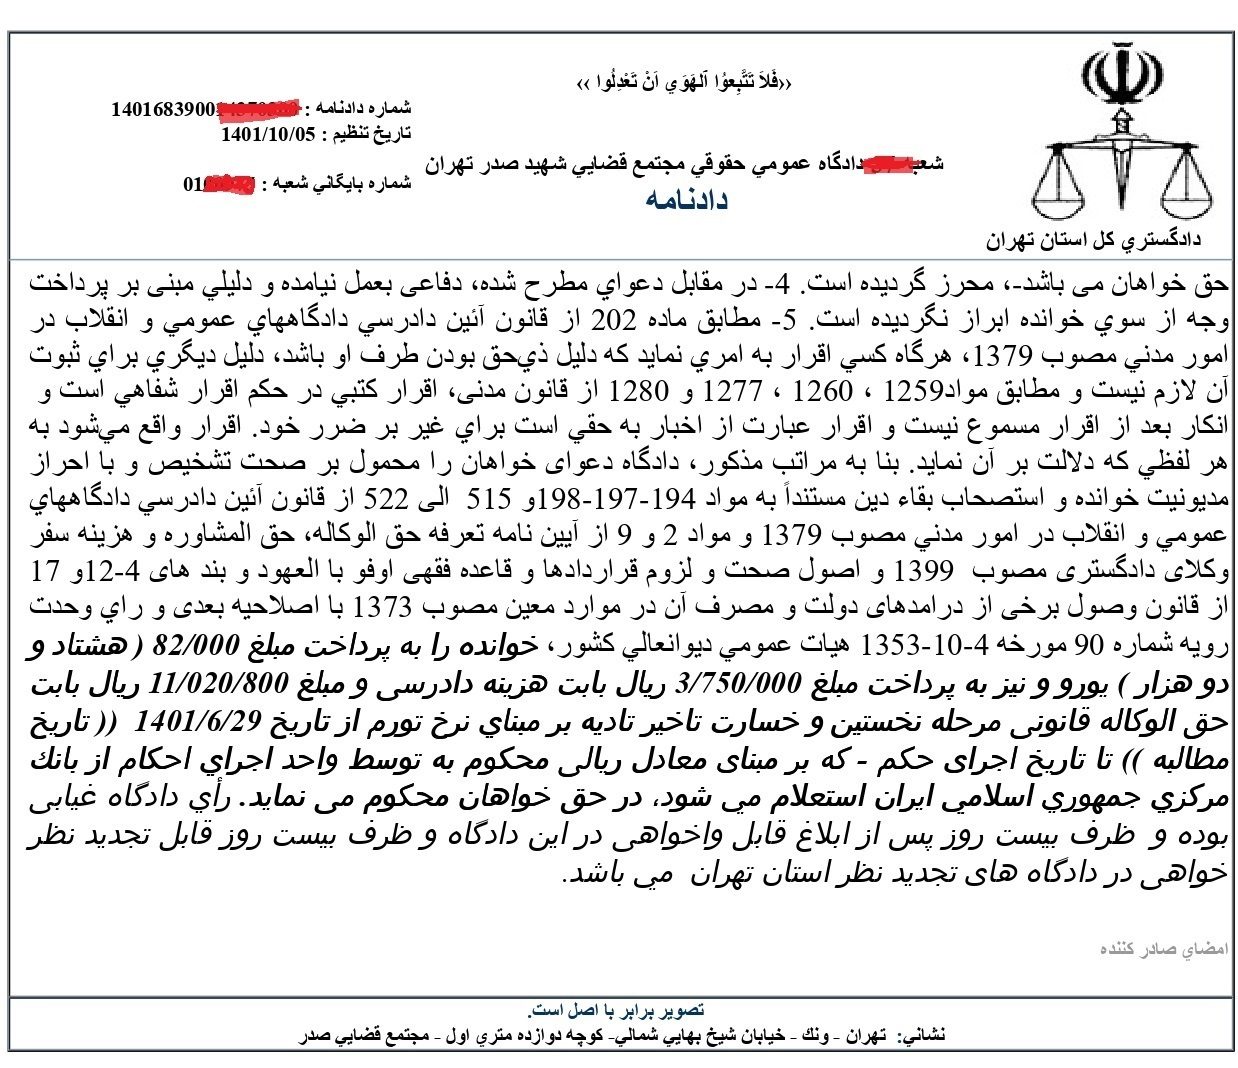 ‹‹فَلاَ تَتَّبِعوُا ٱلهَوَي اَنْ تَعْدِلُوا ››
شماره دادنامه : 14016839001
تاريخ تنظيم : 1401/10/05
شماره بايگاني شعبه : 01
شعبه دادگاه عمومي حقوقي مجتمع قضايي شهيد صدر تهران
دادنامه
دادگستري كل استان تهران
حق خواهان می باشد-، محرز گرديده است. 4- در مقابل دعواي مطرح شده، دفاعی بعمل نيامده و دليلي مبنی بر پرداخت
وجه از سوي خوانده ابراز نگرديده است. 5- مطابق ماده 202 از قانون آئين دادرسي دادگاههاي عمومي و انقلاب در
امور مدني مصوب 1379، هرگاه كسي اقرار به امري نمايد كه دليل ذي‌حق بودن طرف او باشد، دليل ديگري براي ثبوت
آن لازم نيست و مطابق مواد1259 ، 1260 ، 1277 و 1280 از قانون مدنی، اقرار كتبي در حكم اقرار شفاهي است و
انكار بعد از اقرار مسموع نيست و اقرار عبارت از اخبار به حقي است براي غير بر ضرر خود. اقرار واقع مي‌شود به
هر لفظي كه دلالت بر آن نمايد. بنا به مراتب مذكور، دادگاه دعوای خواهان را محمول بر صحت تشخيص و با احراز
مديونيت خوانده و استصحاب بقاء دين مستنداً به مواد 194-197-198و 515 الی 522 از قانون آئين دادرسي دادگاههاي
عمومي و انقلاب در امور مدني مصوب 1379 و مواد 2 و 9 از آيين نامه تعرفه حق الوكاله، حق المشاوره و هزينه سفر
وكلای دادگستری مصوب 1399 و اصول صحت و لزوم قراردادها و قاعده فقهی اوفو با العهود و بند های 4-12و 17
از قانون وصول برخی از درامدهای دولت و مصرف آن در موارد معين مصوب 1373 با اصلاحيه بعدی و راي وحدت
رويه شماره 90 مورخه 4-10-1353 هيات عمومي ديوانعالي كشور، خوانده را به پرداخت مبلغ 82/000 ( هشتاد و
دو هزار ) يورو و نيز به پرداخت مبلغ 3/750/000 ريال بابت هزينه دادرسی و مبلغ 11/020/800 ريال بابت
حق الوكاله قانونی مرحله نخستين و خسارت تاخير تاديه بر مبناي نرخ تورم از تاريخ 1401/6/29 (( تاريخ
مطالبه )) تا تاريخ اجرای حكم - كه بر مبنای معادل ريالی محكوم به توسط واحد اجراي احكام از بانك
مركزي جمهوري اسلامي ايران استعلام مي شود، در حق خواهان محكوم می نمايد. رأي دادگاه غيابی
بوده و ظرف بيست روز پس از ابلاغ قابل واخواهی در اين دادگاه و ظرف بيست روز قابل تجديد نظر
خواهی در دادگاه های تجديد نظر استان تهران مي باشد.
امضاي صادر كننده
تصوير برابر با اصل است.
نشاني: تهران - ونك - خيابان شيخ بهايي شمالي- كوچه دوازده متري اول - مجتمع قضايي صدر